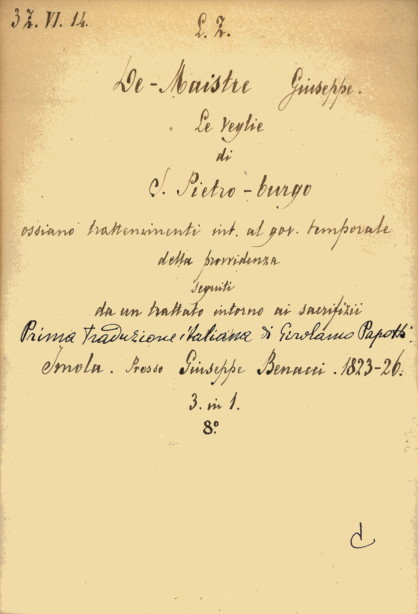 3 Z. VI. 14.
L. Z.
De-Maistre Giuseppe.
Le Veglie
di
S. Pietro-burgo
ossiano trattenimenti int. al gov. temporale
della provvidenza
seguiti
da un trattato intorno ai sacrifizii
Prima traduzione italiana di Gerolamo Papotti.
Imola. Presso Giuseppe Benacci. 1823-26.
3. in 1.
8º
d